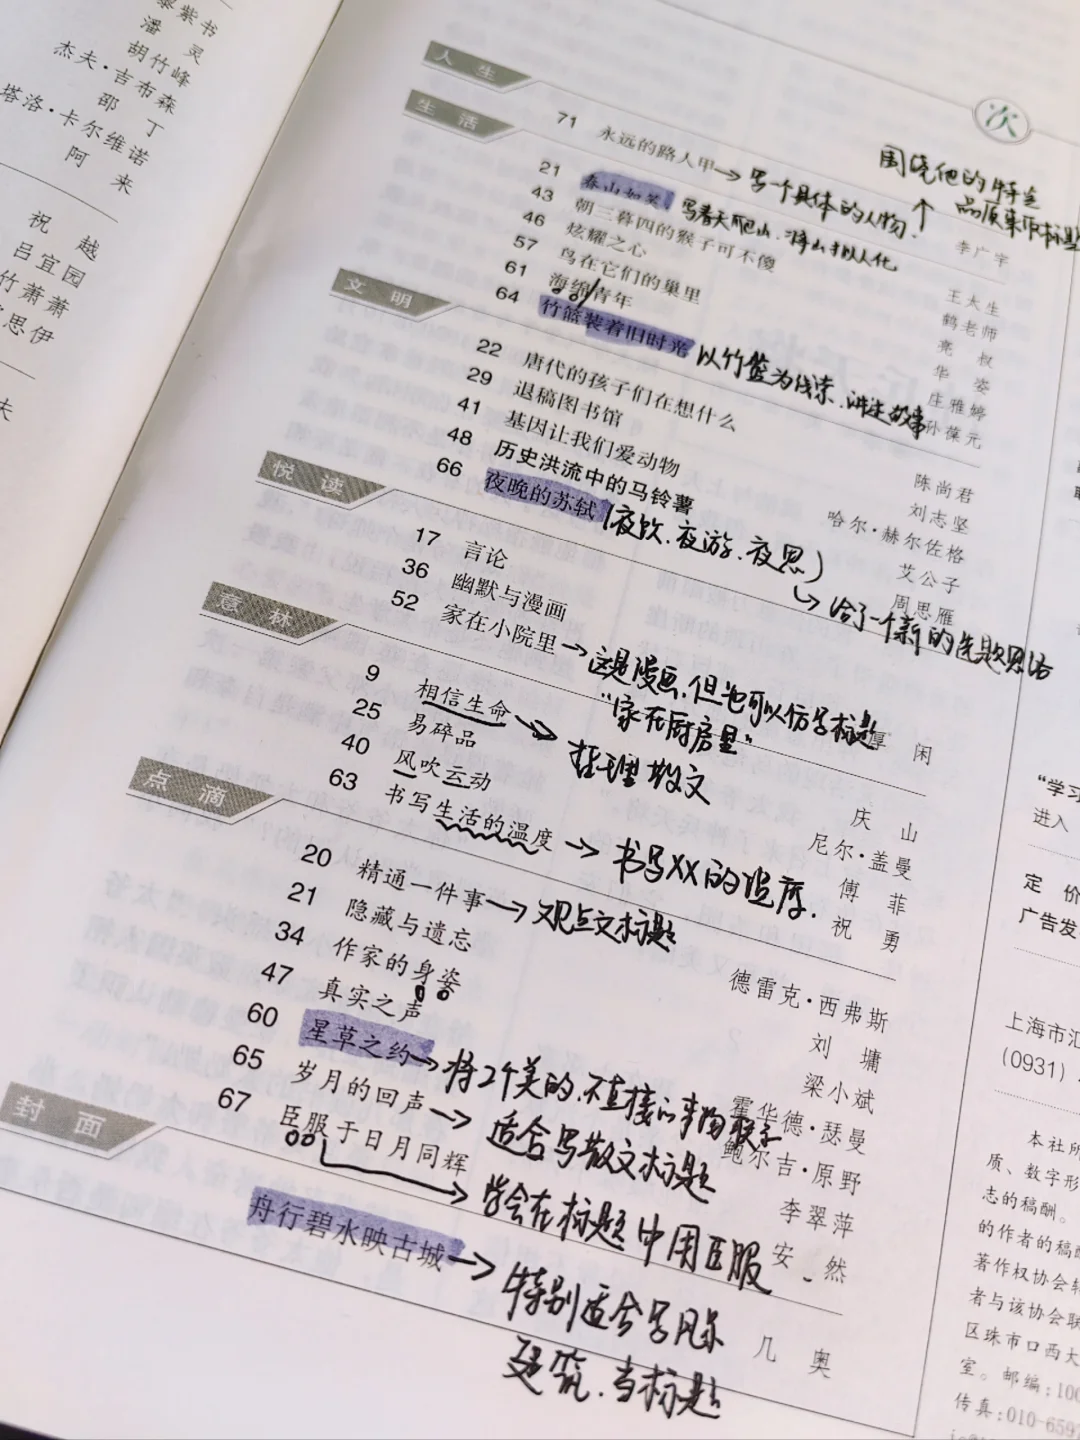 黎紫书
潘 灵
胡竹峰
杰夫·吉布森
邵 丁
塔洛·卡尔维诺
阿 来
祝 越
吕宜园
竹萧萧
思伊
夫
次
人 生
71 永远的路人甲 → 写一个具体的人物. 李广宇
围绕他的特定
品质来取标题
生 活
21 春山如笑 写春天爬山.将山拟人化 王太生
43 朝三暮四的猴子可不傻 鹤老师
46 炫耀之心 亮 叔
57 鸟在它们的巢里 华 姿
61 海绵青年 庄雅婷
64 竹篮装着旧时光 以竹篮为线索.讲述故事 孙葆元
文 明
22 唐代的孩子们在想什么 陈尚君
29 退稿图书馆 刘志坚
41 基因让我们爱动物 哈尔·赫尔佐格
48 历史洪流中的马铃薯 艾公子
66 夜晚的苏轼 (夜饮.夜游.夜思) 周思雁
→ 给了一个新的选题思路
悦 读
17 言论
36 幽默与漫画
52 家在小院里 → 这是漫画.但也可以仿写标题 厚 闲
"家在厨房里"
意 林
9 相信生命 → 哲理散文 庆 山
25 易碎品 尼尔·盖曼
40 风吹云动 傅 菲
63 书写生活的温度 → 书写XX的温度. 祝 勇
点 滴
20 精通一件事 → 观点文标题 德雷克·西弗斯
21 隐藏与遗忘 刘 墉
34 作家的身姿 梁小斌
47 真实之声 霍华德·瑟曼
60 星草之约 → 将2个美的.不直接的事物联系 鲍尔吉·原野
65 岁月的回声 → 适合写散文标题 李翠萍
67 臣服于日月同辉 → 学会在标题中用臣服 安 然
封 面
舟行碧水映古城 → 特别适合写风景 几 奥
建筑.当标题
"学习
进入
定 价
广告发
上海市汇
(0931)
本社所
质、数字形
志的稿酬。
的作者的稿酬
著作权协会转
者与该协会联
区珠市口西大
室。邮编:100
传真:010-659